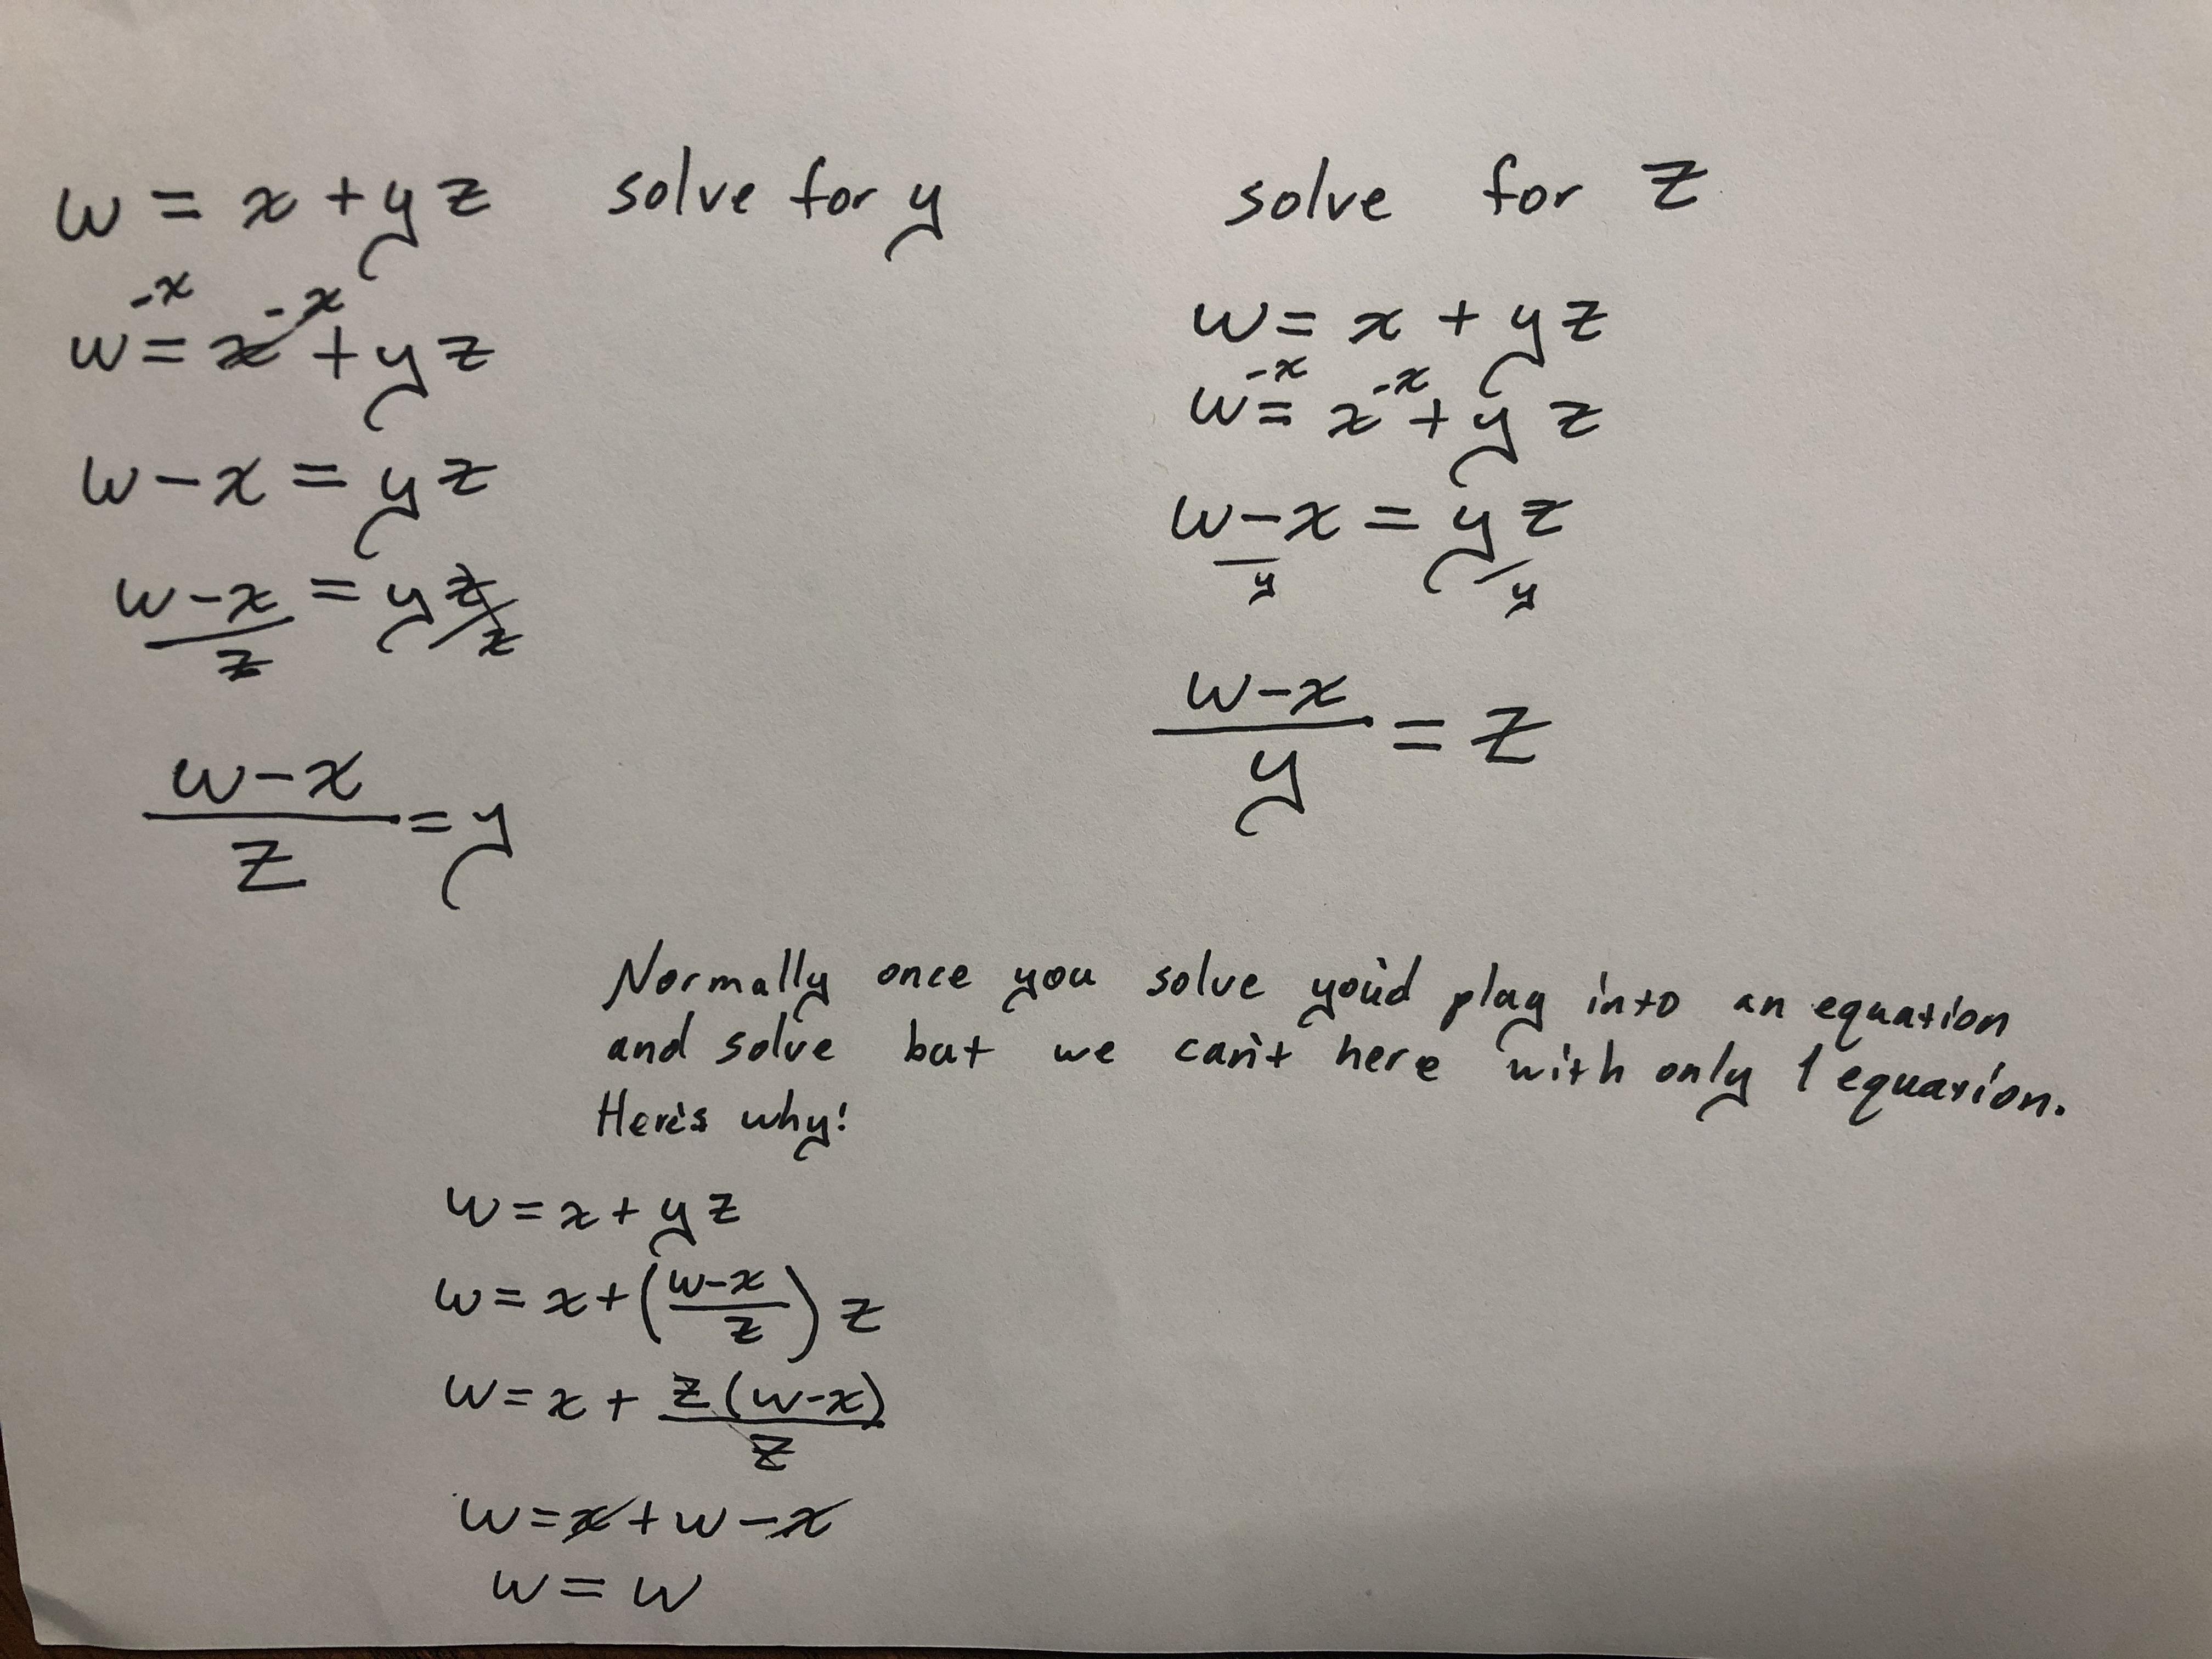 w = x + yz solve for y
-x -x
w = x + yz
w - x = yz
w-x/z = yz/z
w-x/z = y
solve for z
w = x + yz
-x -x
w = x + yz
w-x/y = yz/y
w-x/y = z
Normally once you solve you'd plug into an equation
and solve but we can't here with only 1 equation.
Here's why!
w = x + yz
w = x + (w-x/z) z
w = x + z(w-x)/z
w = x + w - x
w = w